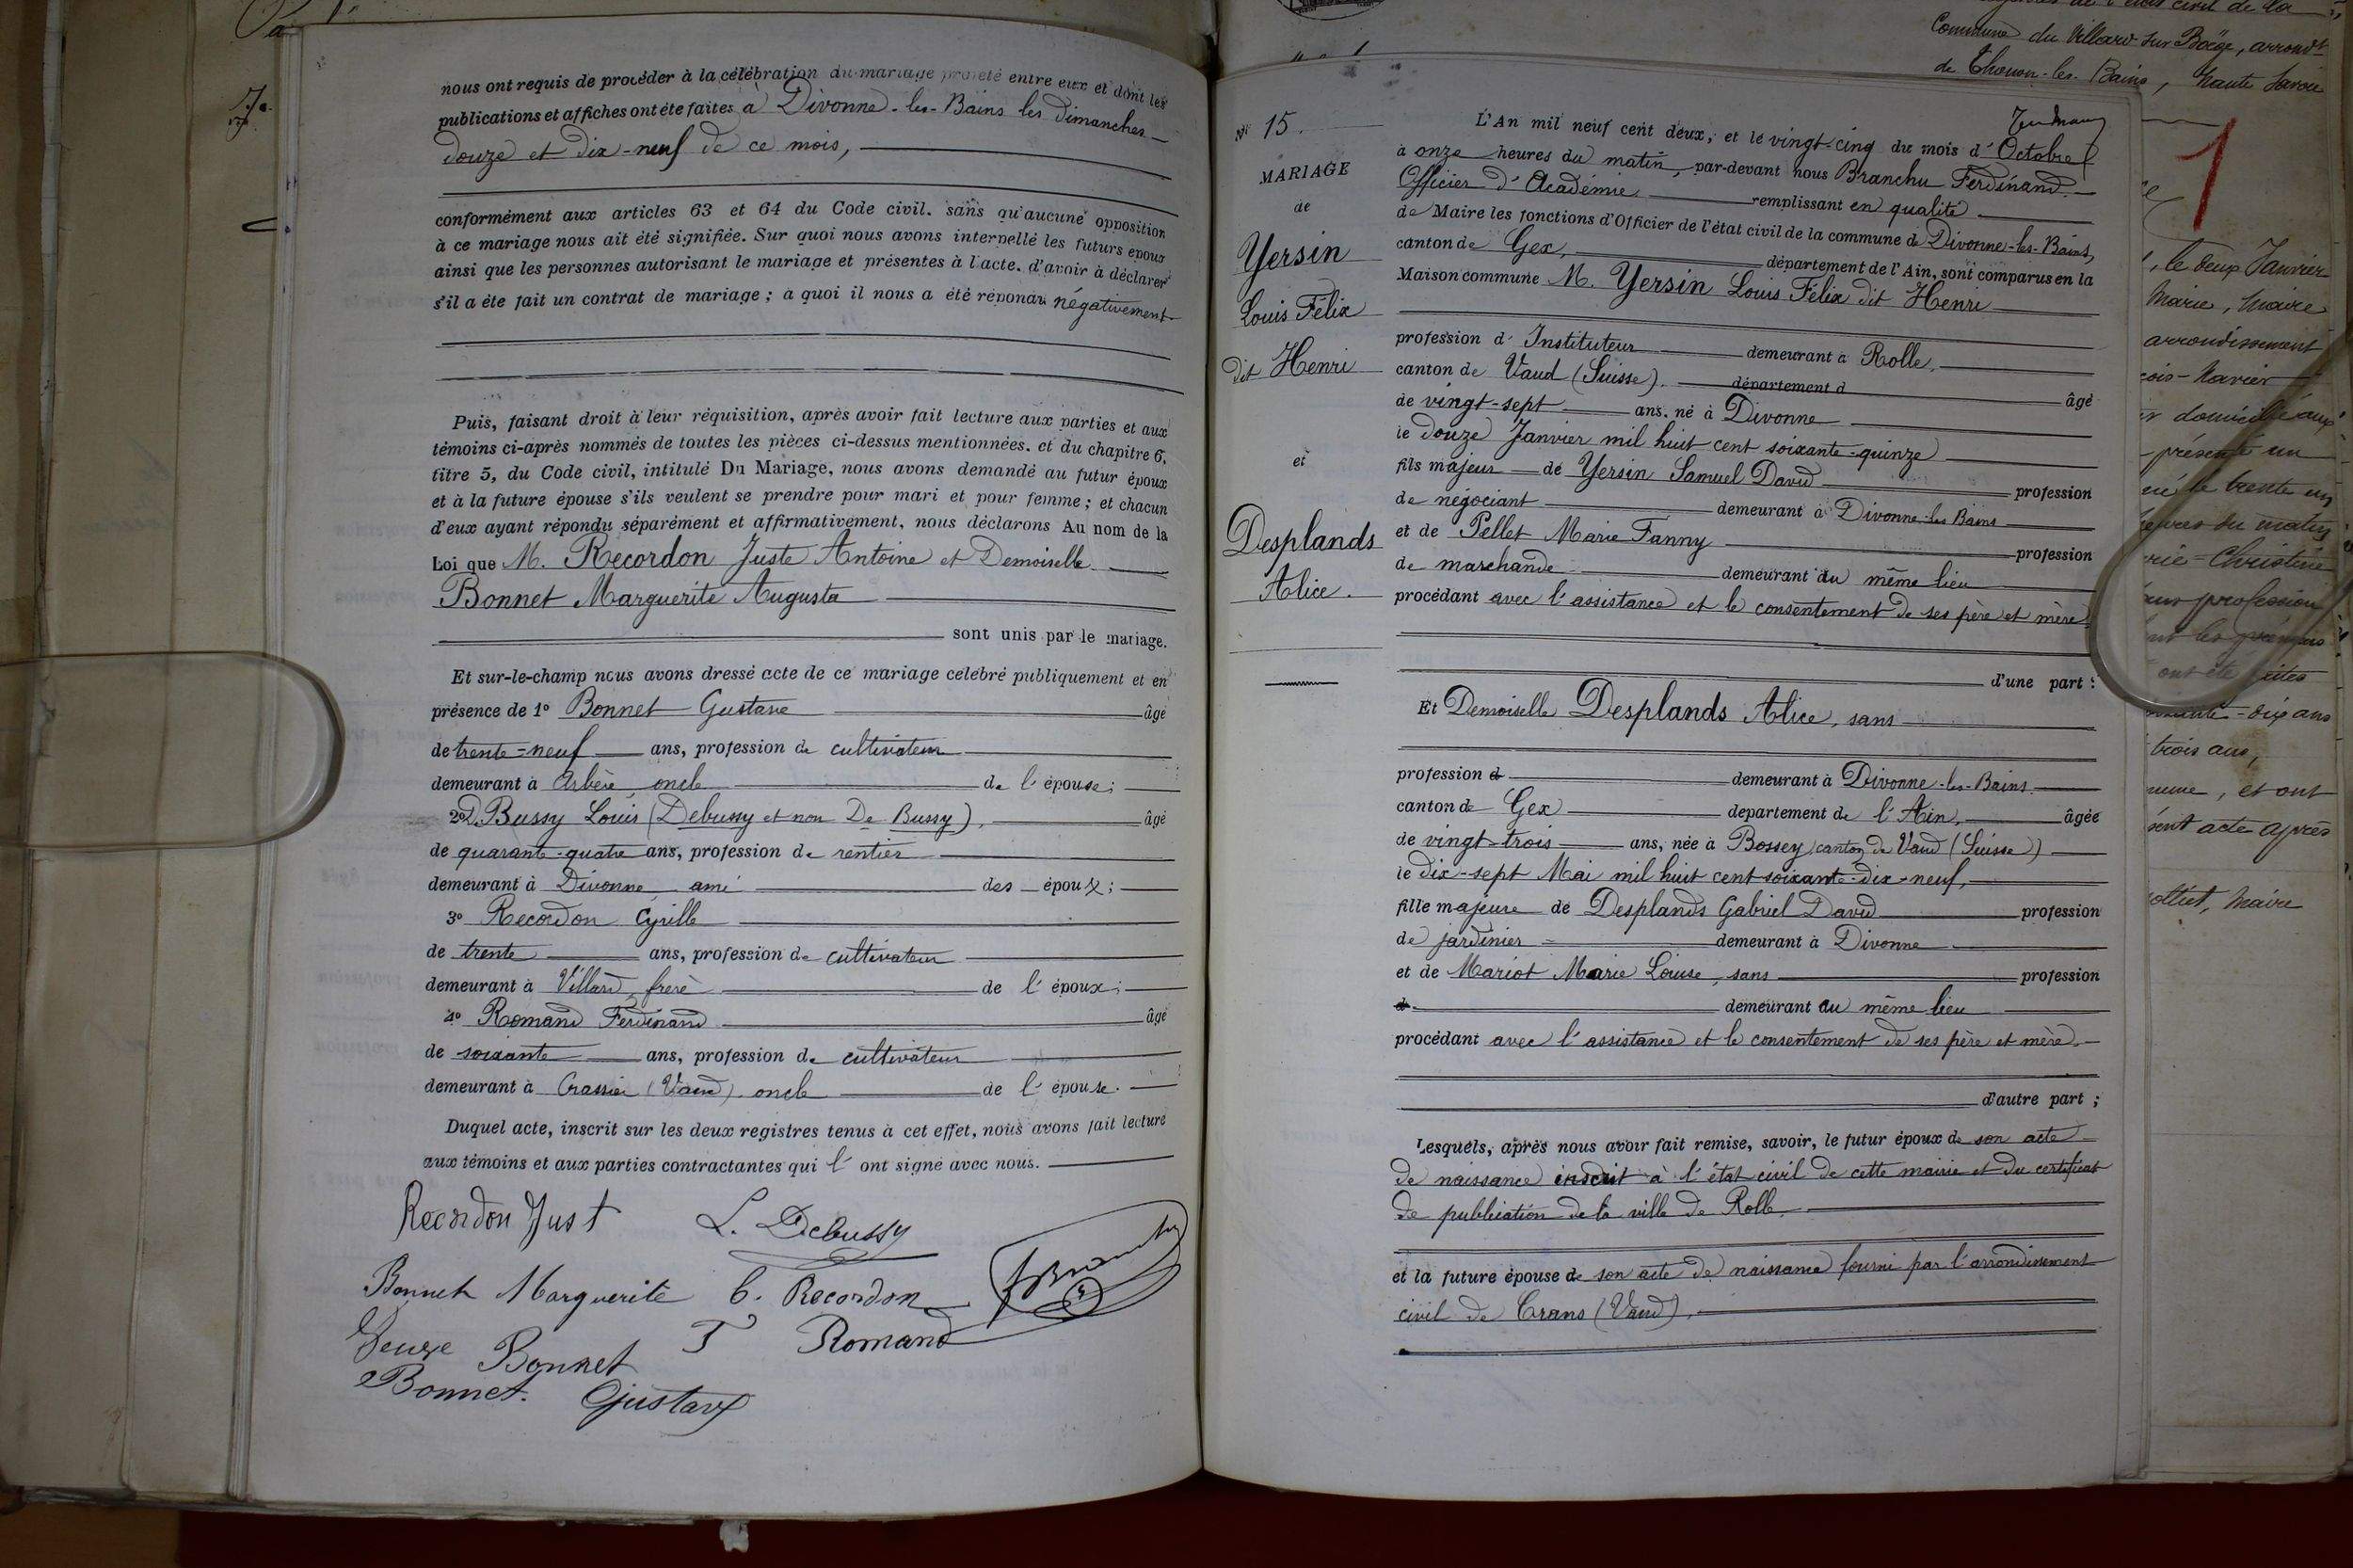 nous ont requis de procéder à la célébration du mariage projeté entre eux et dont les
publications et affiches ont été faites à Divonne-les-Bains les dimanches
douze et dix-neuf de ce mois,
conformément aux articles 63 et 64 du Code civil. sans qu'aucune opposition
à ce mariage nous ait été signifiée. Sur quoi nous avons interpellé les futurs époux
ainsi que les personnes autorisant le mariage et présentes à l'acte. d'avoir à déclarer
s'il a été fait un contrat de mariage ; à quoi il nous a été répondu négativement
Puis, faisant droit à leur réquisition, après avoir fait lecture aux parties et aux
témoins ci-après nommés de toutes les pièces ci-dessus mentionnées. et du chapitre 6,
titre 5, du Code civil, intitulé Du Mariage, nous avons demandé au futur époux
et à la future épouse s'ils veulent se prendre pour mari et pour femme ; et chacun
d'eux ayant répondu séparément et affirmativement, nous déclarons Au nom de la
Loi que M. Recordon Juste Antoine et Demoiselle
Bonnet Marguerite Augusta
sont unis par le mariage.
Et sur-le-champ nous avons dressé acte de ce mariage célébré publiquement et en
présence de 1º Bonnet Gustave âgé
de trente-neuf ans, profession de cultivateur
demeurant à Arbère oncle de l'épouse ;
2º D. Bussy Louis (Debussy et non De Bussy), âgé
de quarante-quatre ans, profession de rentier
demeurant à Divonne ami des époux ;
3º Recordon Cyrille
de trente ans, profession de cultivateur
demeurant à Villard, frère de l'époux ;
4º Romand Ferdinand âgé
de soixante ans, profession de cultivateur
demeurant à Crassier (Vaud) oncle de l'épouse.
Duquel acte, inscrit sur les deux registres tenus à cet effet, nous avons fait lecture
aux témoins et aux parties contractantes qui l'ont signé avec nous.
Recordon Just L. Debussy
Bonnet Marguerite C. Recordon
Bonnet F Romand
Bonnet. Gustave
Nº 15.
MARIAGE
de
Yersin
Louis Félix
dit Henri
et
Desplands
Alice.
L'An mil neuf cent deux, et le vingt-cinq du mois d'Octobre
à onze heures du matin, par-devant nous Branchu Ferdinand
Officier d'Académie remplissant en qualité
de Maire les fonctions d'Officier de l'état civil de la commune de Divonne-les-Bains,
canton de Gex, département de l'Ain, sont comparus en la
Maison commune M. Yersin Louis Félix dit Henri
profession d'Instituteur demeurant à Rolle,
canton de Vaud (Suisse). département d âgé
de vingt-sept ans. né à Divonne
le douze Janvier mil huit cent soixante-quinze
fils majeur de Yersin Samuel David profession
de négociant demeurant à Divonne-les-Bains
et de Pellet Marie Fanny profession
de marchande demeurant au même lieu
procédant avec l'assistance et le consentement de ses père et mère
d'une part :
Et Demoiselle Desplands Alice, sans
profession d demeurant à Divonne-les-Bains.
canton de Gex département de l'Ain, âgée
de vingt-trois ans, née à Bossey canton de Vaud (Suisse)
le dix-sept Mai mil huit cent soixante-dix-neuf,
fille majeure de Desplands Gabriel David profession
de jardinier demeurant à Divonne
et de Mariot Marie Louise, sans profession
d demeurant au même lieu
procédant avec l'assistance et le consentement de ses père et mère.
d'autre part ;
Lesquels, après nous avoir fait remise, savoir, le futur époux de son acte
de naissance inscrit à l'état civil de cette mairie et du certificat
de publication de la ville de Rolle,
et la future épouse de son acte de naissance fourni par l'arrondissement
civil de Crans (Vaud).
état civil de la
Commune du Villard sur Boëge, arrondt
de Thonon-les-Bains, haute Savoie
1
, le deux Janvier
Marie, Maire
arrondissement
présenté un
trente un
heures du matin
Christine
profession
ont été faites
dix ans
trois ans,
, et ont
acte après
, Maire